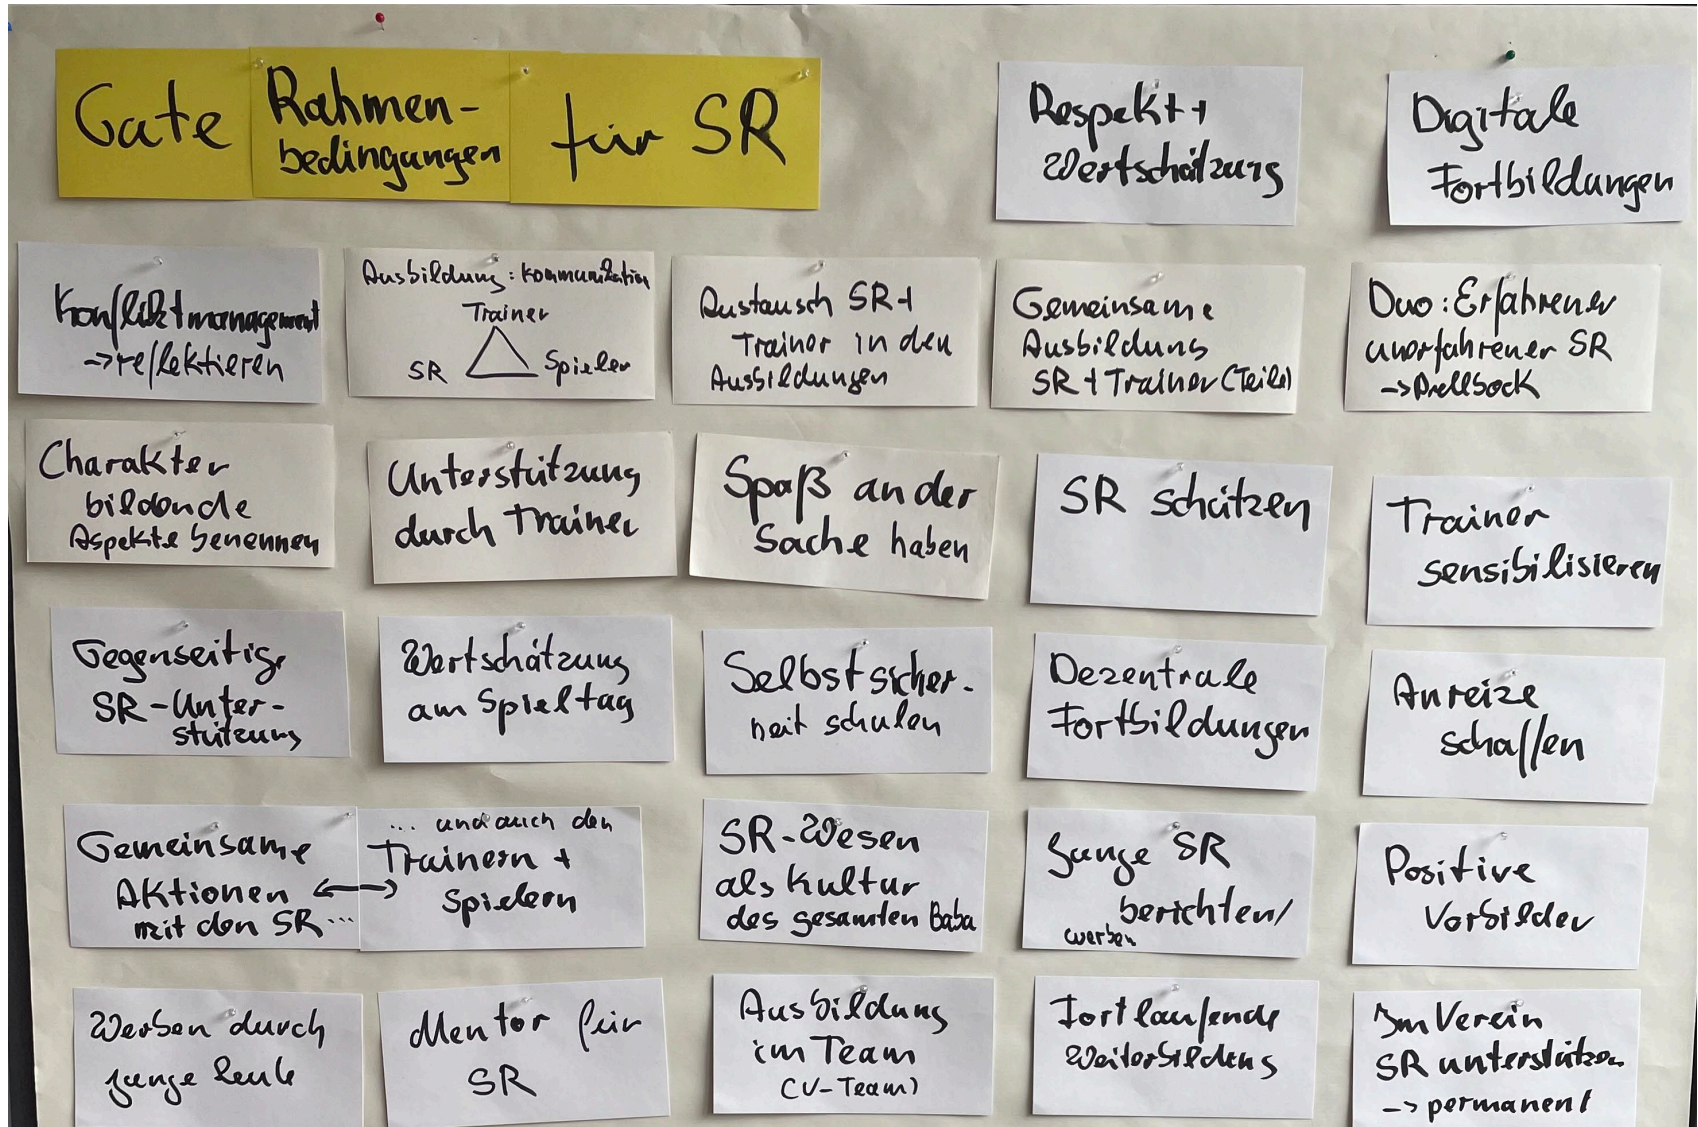 Gute Rahmen-
bedingungen für SR
Respekt +
Wertschätzung
Digitale
Fortbildungen
Konfliktmanagement
->reflektieren
Ausbildung: Kommunikation
Trainer
SR Spieler
Austausch SR +
Trainer in den
Ausbildungen
Gemeinsame
Ausbildung
SR + Trainer (Teile)
Duo: Erfahrener
unerfahrener SR
->Prellbock
Charakter
bildende
Aspekte benennen
Unterstützung
durch Trainer
Spaß an der
Sache haben
SR schätzen
Trainer
sensibilisieren
Gegenseitige
SR-Unter-
stützung
Wertschätzung
am Spieltag
Selbstsicher-
heit schulen
Dezentrale
Fortbildungen
Anreize
schaffen
Gemeinsame
Aktionen <->
mit den SR ...
... und auch den
Trainern +
Spielern
SR-Wesen
als Kultur
des gesamten Baba
Junge SR
berichten/
werben
Positive
Vorbilder
Werben durch
junge Leute
Mentor für
SR
Ausbildung
im Team
(V-Team)
Fortlaufende
Weiterbildung
Im Verein
SR unterstützen
-> permanent